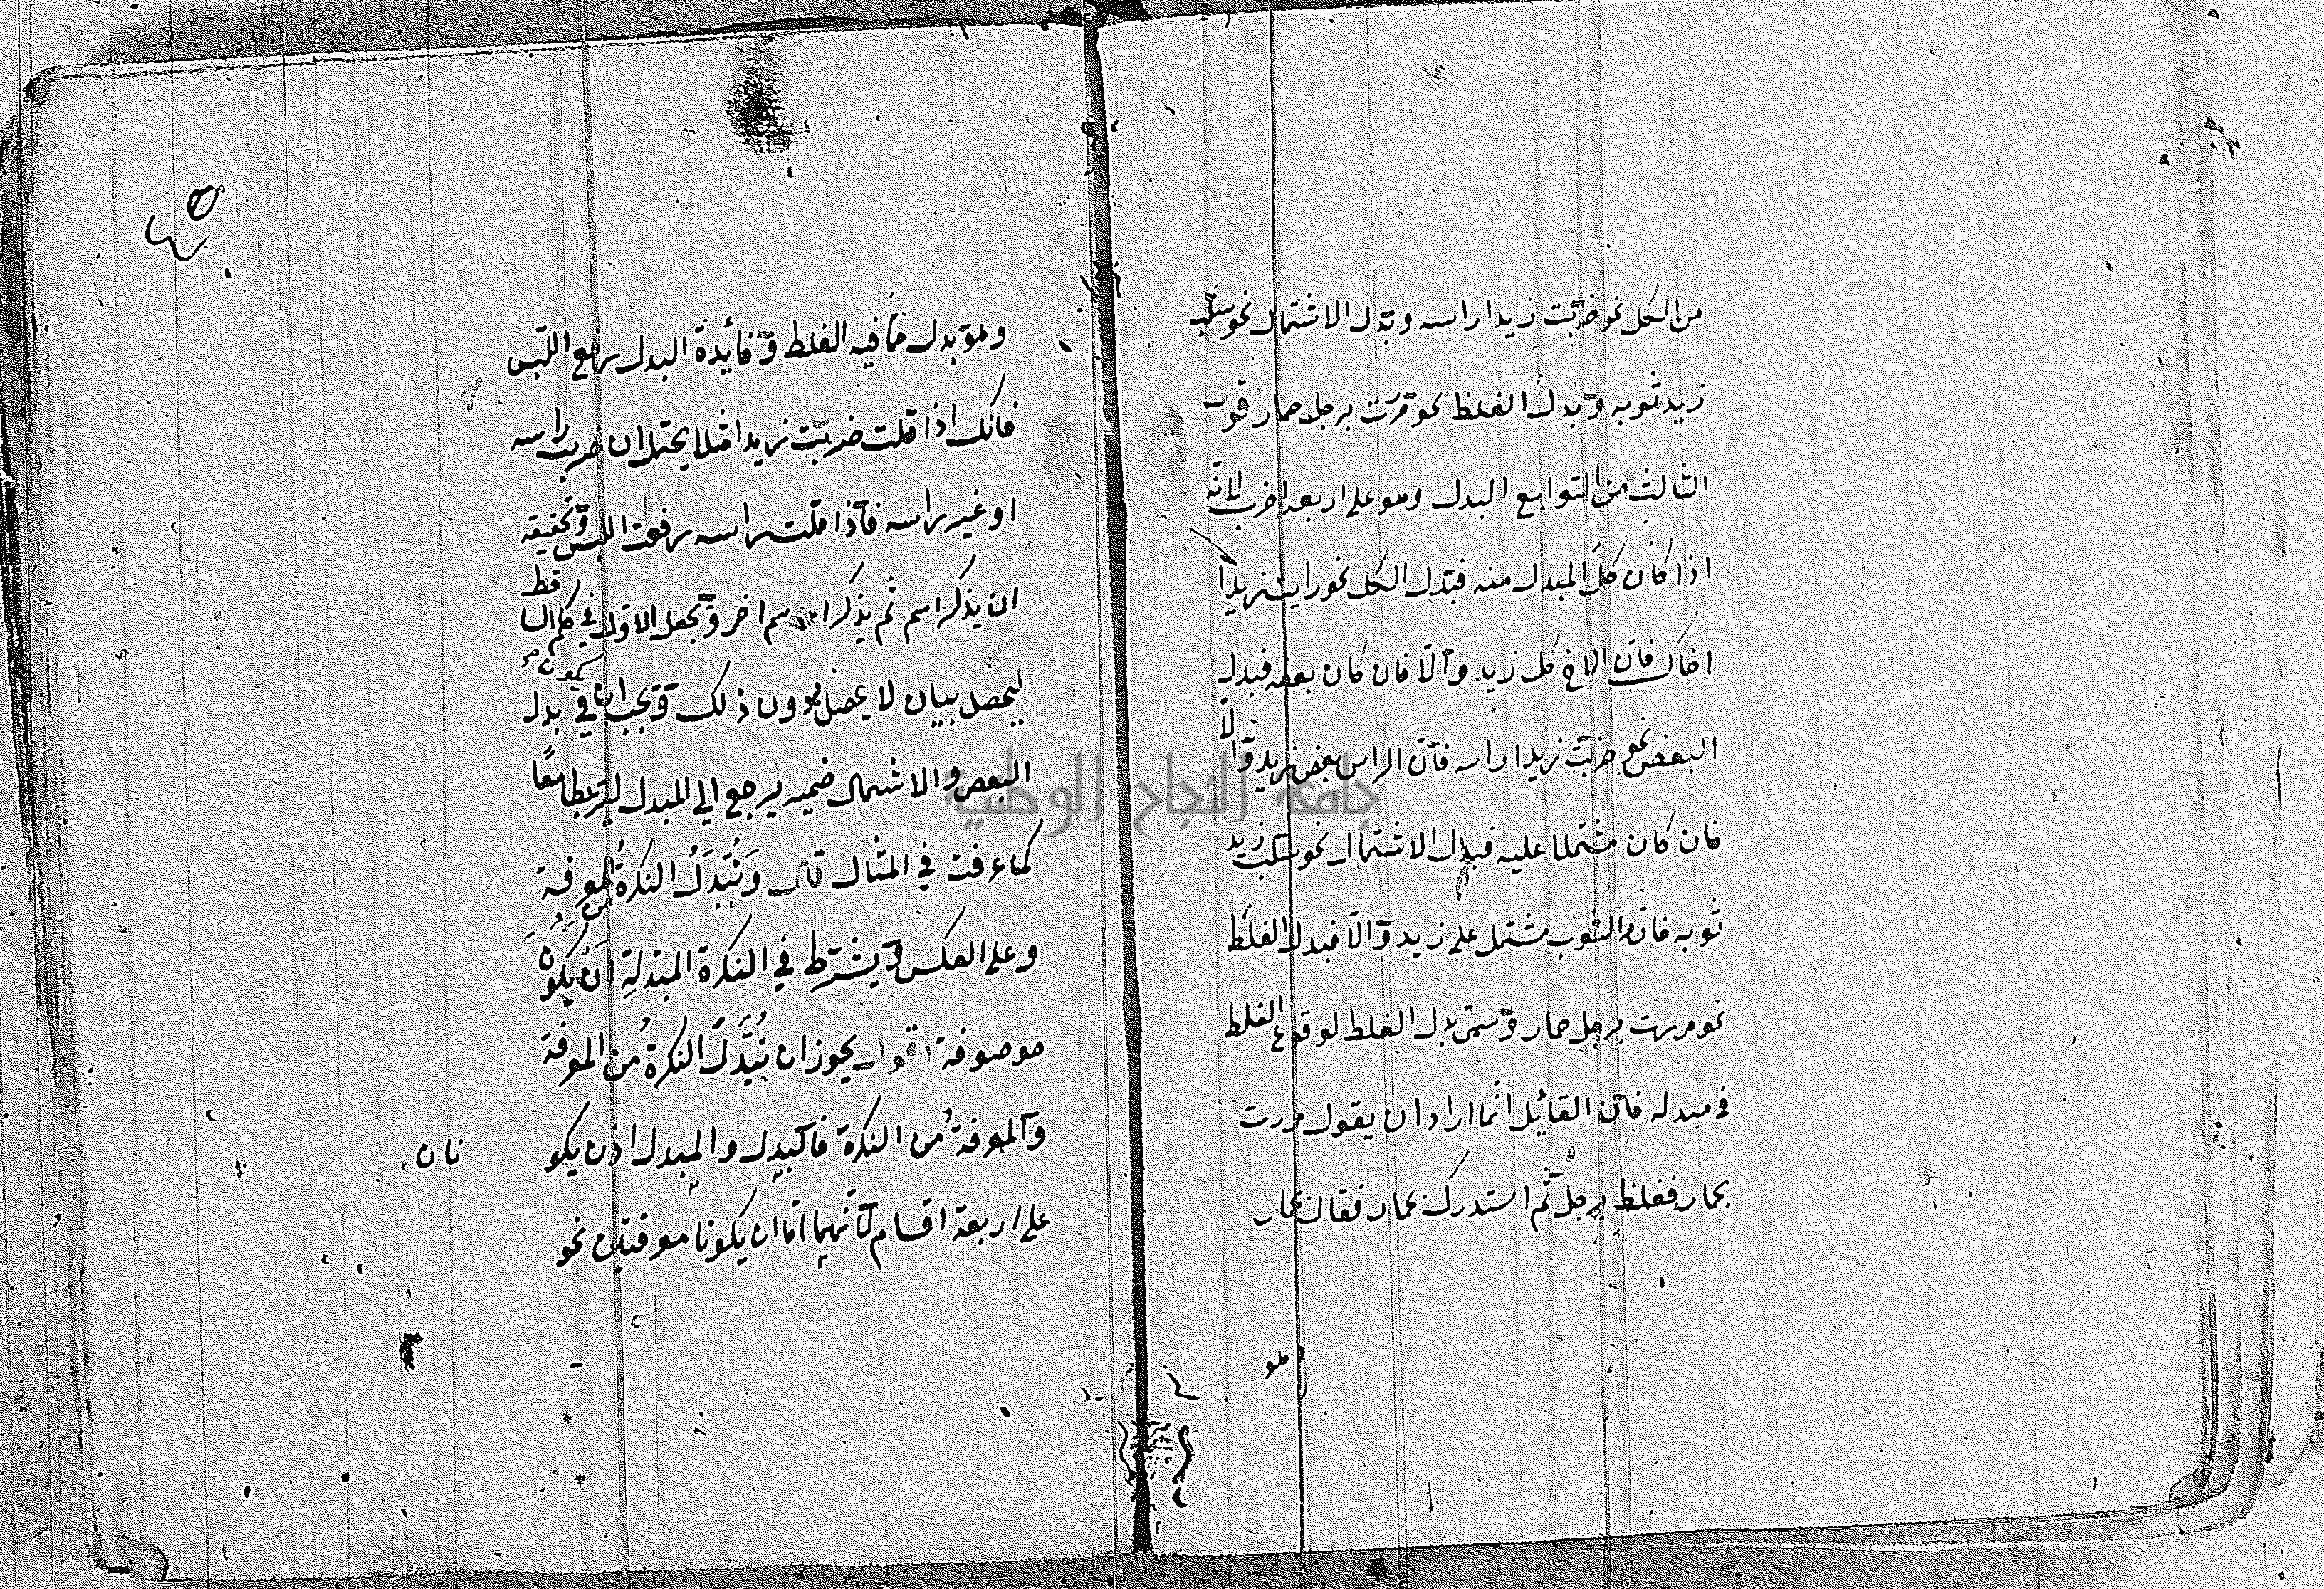 من الكل نحو ضربت زيدا راسه وبدل الاشتمال نحو سلب
زيد ثوبه وبدل الغلط نحو مررت برجل حمار اقول
الثالث من التوابع البدل وهو على اربعة اضرب لانه
اذا كان كل المبدل منه فبدل الكل نحو رايت زيدا
اخاك فان الاخ كل زيد والا فان كان بعضه فبدل
البعض نحو ضربت زيدا راسه فان الراس بعض زيد والا
فان كان مشتملا عليه فبدل الاشتمال نحو سلب زيد
ثوبه فان الثوب مشتمل على زيد والا فبدل الغلط
نحو مررت برجل حمار وسمى بدل الغلط لوقوع الغلط
في مبدله فان القائل انما اراد ان يقول مررت
بحمار فغلط برجل ثم استدرك بحمار فقال بحمار
وهو بدل مما فيه الغلط وفائدة البدل رفع اللبس
فانك اذا قلت ضربت زيدا مثلا يحتمل ان ضربت راسه
او غير راسه فاذا قلت راسه رفعت اللبس وتحقيقه
ان يذكر اسم ثم يذكر اسم اخر وتجعل الاول في حكم الساقط
ليحصل بيان لا يحصل بدون ذلك ويجب ان يكون في بدل
البعض والاشتمال ضمير يرجع الى المبدل ليرتبطا معا
كما عرفت في المثال قال وَتُبْدَلُ النكرةُ من المعرفة
وعلى العكس ويشترط في النكرة المبدلة ان يكون
موصوفة اقول يجوز ان تُبَدَّلَ النكرةُ من المعرفة
والمعرفة من النكرة فالبدل والمبدل اذن يكونان
على اربعة اقسام لانهما اما ان يكونا معرفتين نحو
جامعة النجاح الوطنية